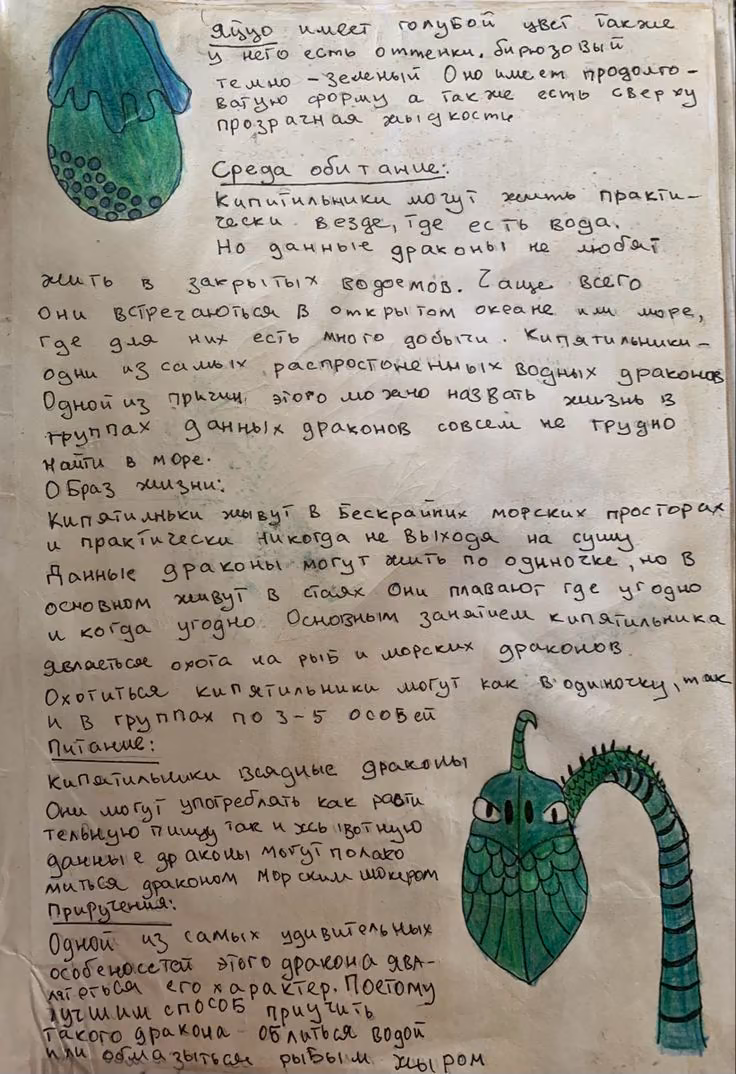 яйцо имеет голубой цвет также
у него есть оттенки. бирюзовый
темно-зеленый Оно имеет продолго-
ватую форму а также есть сверху
прозрачная жыдкость
Среда обитание:
Кипитильники могут жить практи-
чески везде, где есть вода.
Но данные драконы не любят
жить в закрытых водоемов. Чаще всего
они встречаються в открытом океане или море,
где для них есть много добычи. Кипятильники-
одни из самых распростоненных водных драконов
Одной из причин, этого можно назвать жизнь в
группах данных драконов совсем не трудно
найти в море.
Образ жизни:
Кипятилньки жывут в Бескрайних морских просторах
и практически никогда не выходя на сушу
Данные драконы могут жить по одиночке, но в
основном живут в стаях Они плавают где угодно
и когда угодно. Основным занятием кипятильника
являеться охота на рыб и морских драконов.
Охотиться кипятильники могут как в одиночку, так
и в группах по 3-5 особей
Питание:
Кипятильники всядные драконы
Они могут употреблять как расти
тельную пищу так и жывотную
данные драконы могут полако
миться драконом морским шокером
Приручения:
Одной из самых удивительных
особеносетей этого дракона явл-
ляеться его характер. Поетому
лучшим способ приучить
такого дракона облиться водой
или обмазыться рыбым жыром